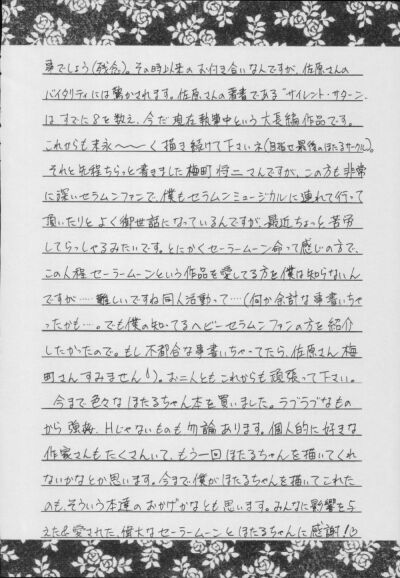 事でしょう(残念)。その時以来のお付き合いなんですが、佐原さんの
バイタリティには驚かされます。佐原さんの著書である"サイレント・サターン"
はすでに8を数え、今だ現在執筆中という大長編作品です。
これからも末永〜〜〜く描き続けて下さいネ(目指せ最後のほたるサークル)。
それと先程ちらっと書きました梅町将二さんですが、この方も非常
に深いセラムンファンで、僕もセラムンミュージカルに連れて行って
頂いたりとよく御世話になっているんですが、最近ちょっと苦労
してらっしゃるみたいです。とにかくセーラームーン命って感じの方で、
この人程セーラームーンという作品を愛してる方を僕は知らないん
ですが……難しいですね同人活動って……(何か余計な事書いちゃ
ったかも…。でも僕の知ってるヘビーセラムンファンの方を紹介
したかったので。もし不都合な事書いちゃってたら、佐原さん梅
町さんすみません)。お二人ともこれからも頑張って下さい。
今まで色々なほたるちゃん本を買いました。ラブラブなもの
から強姦、Hじゃないものも勿論あります。個人的に好きな
作家さんもたくさんいて、もう一回ほたるちゃんを描いてくれ
ないかなとか思います。今まで、僕がほたるちゃんを描いてこれた
のも、そういう本達のおかげかなとも思います。みんなに影響を与
えた&愛された、偉大なセーラームーンとほたるちゃんに感謝!